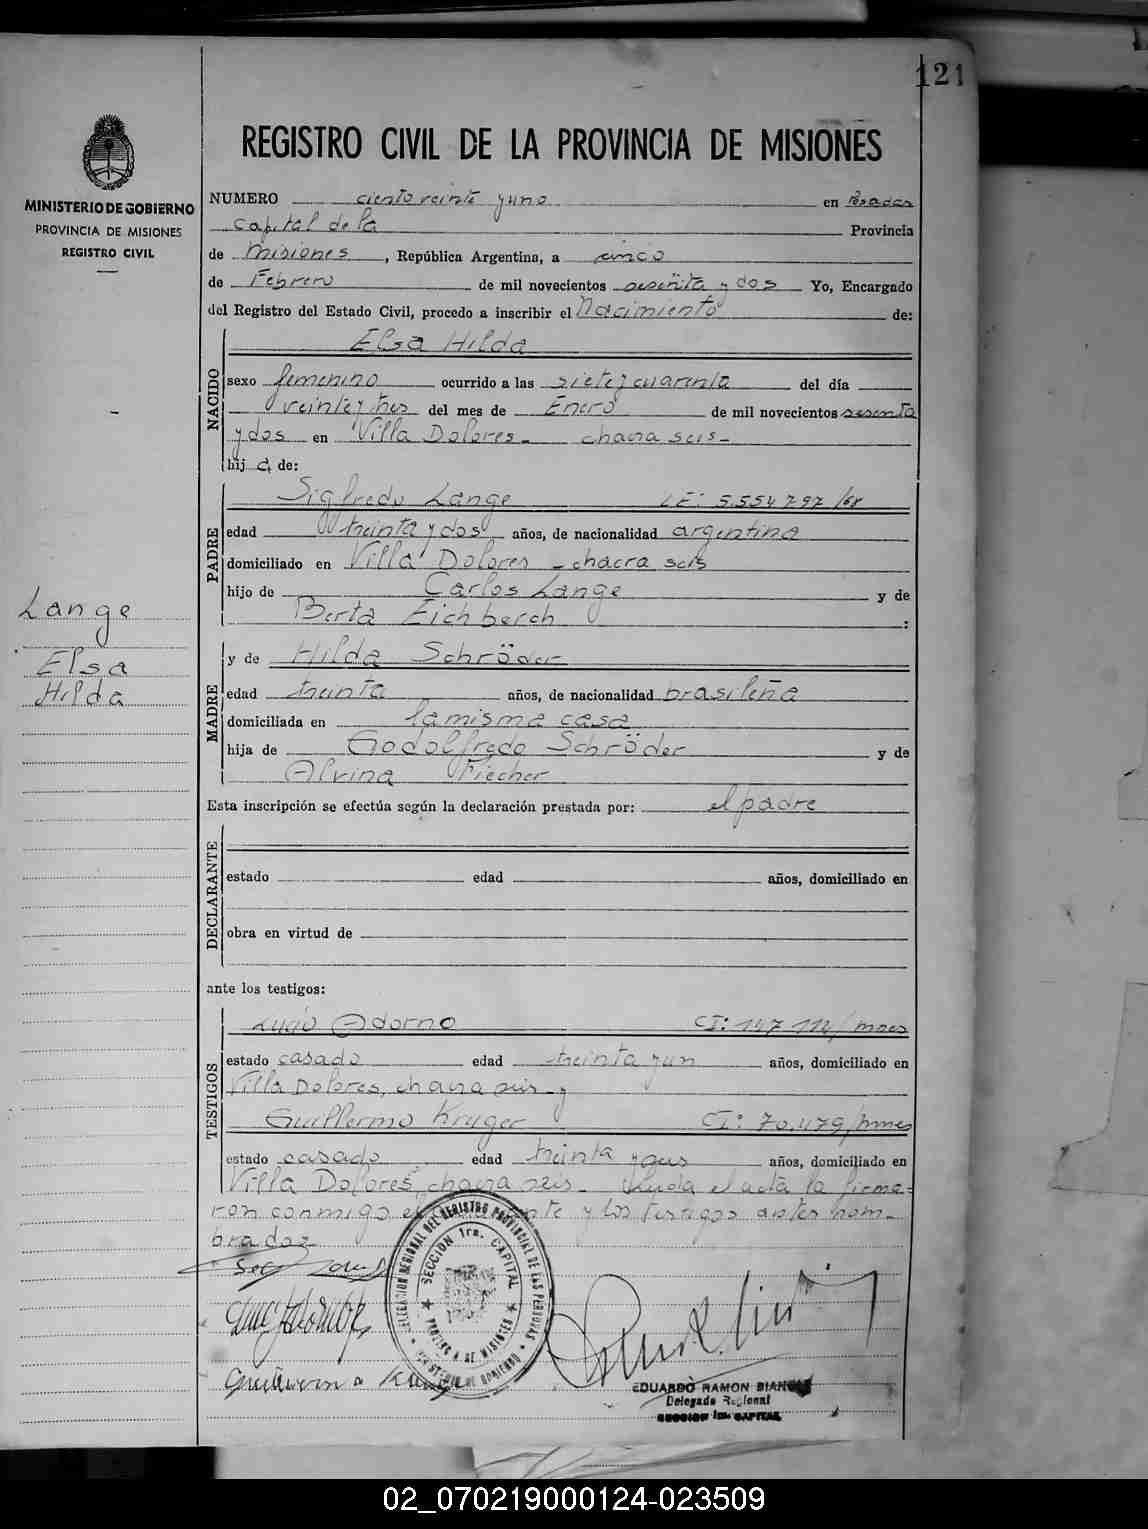 121
REGISTRO CIVIL DE LA PROVINCIA DE MISIONES
MINISTERIO DE GOBIERNO
PROVINCIA DE MISIONES
REGISTRO CIVIL
NUMERO ciento veinte y uno en Posadas
Capital de la Provincia
de Misiones, República Argentina, a cinco
de Febrero de mil novecientos sesenta y dos Yo, Encargado
del Registro del Estado Civil, procedo a inscribir el Nacimiento de:
NACIDO
Elsa Hilda
sexo femenino ocurrido a las siete y cuarenta del día
veinte y tres del mes de Enero de mil novecientos sesenta
y dos en Villa Dolores - chacra seis -
hija de:
PADRE
Sigfredo Lange LE: 5.554.797
edad treinta y dos años, de nacionalidad argentina
domiciliado en Villa Dolores - chacra seis
hijo de Carlos Lange y de
Berta Eichberch :
Lange
Elsa
Hilda
MADRE
y de Hilda Schröder
edad treinta años, de nacionalidad brasileña
domiciliada en la misma casa
hija de Godolfredo Schröder y de
Alvina Fiecher
Esta inscripción se efectúa según la declaración prestada por: el padre
DECLARANTE
estado edad años, domiciliado en
obra en virtud de
ante los testigos:
TESTIGOS
Lucio Adorno CI: /mnes
estado casado edad treinta y un años, domiciliado en
Villa Dolores, chacra seis y
Guillermo Kryger CI: 70.479/mnes
estado casado edad treinta y años, domiciliado en
Villa Dolores, chacra seis - Leida el acta la firma=
ron conmigo el y los testigos antes nom-
brados
DELEGACION REGIONAL DEL REGISTRO PROVINCIAL DE LAS PERSONAS
SECCION 1ra. CAPITAL
PROVINCIA DE MISIONES
MINISTERIO DE GOBIERNO
EDUARDO RAMON
Delegado Regional
SECCION 1ra. CAPITAL
02_070219000124-023509